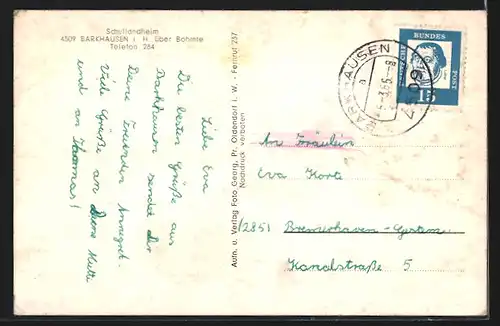 Schullandheim
4509 BARKHAUSEN i. H. über Bohmte
Telefon 264
Liebe Eva
Die besten Grüße aus
Barkhausen sendet Dir
Deine Freundin Annegret.
Viele Grüße an Deine Mutti
und an Thomas!
Aufn. u. Verlag Foto Georg, Pr. Oldendorf i. W. - Fernruf 257
Nachdruck verboten
BARKHAUSEN
4509
DEUTSCHE
BUNDES
POST
15
An Fräulein
Eva Korte
(2851 Bremerhaven-
Kanalstraße 5